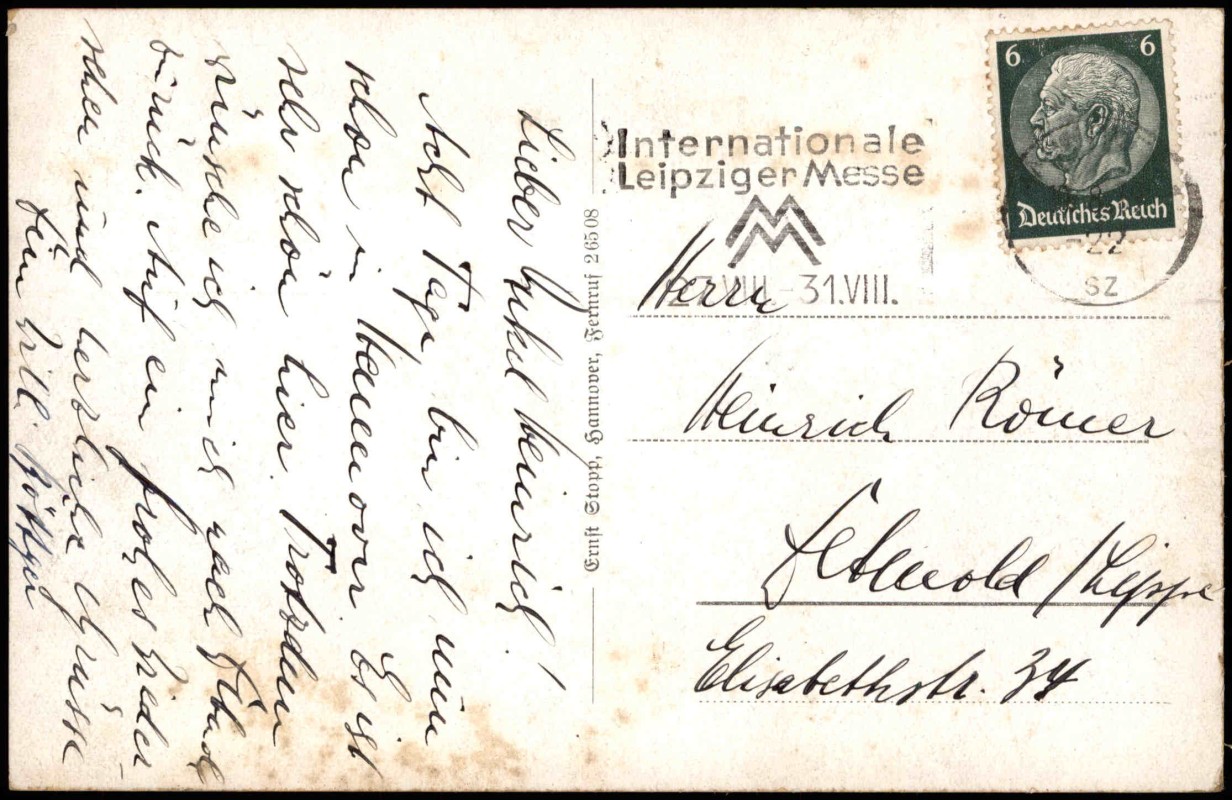 Lieber Onkel Heinrich!
Acht Tage bin ich nun
schon in Hannover. Es ist
sehr schön hier. Trotzdem
wünsche ich mich nach
zurück. Auf ein frohes Wieder-
sehen und herzliche Grüsse
Dein
Ernst Stopp, Hannover, Fernruf 26508
Internationale
Leipziger Messe
VIII.-31.VIII.
6 6
Deutsches Reich
-22
SZ
Herrn
Heinrich Römer
Detmold / Lippe
Elisabethstr. 34